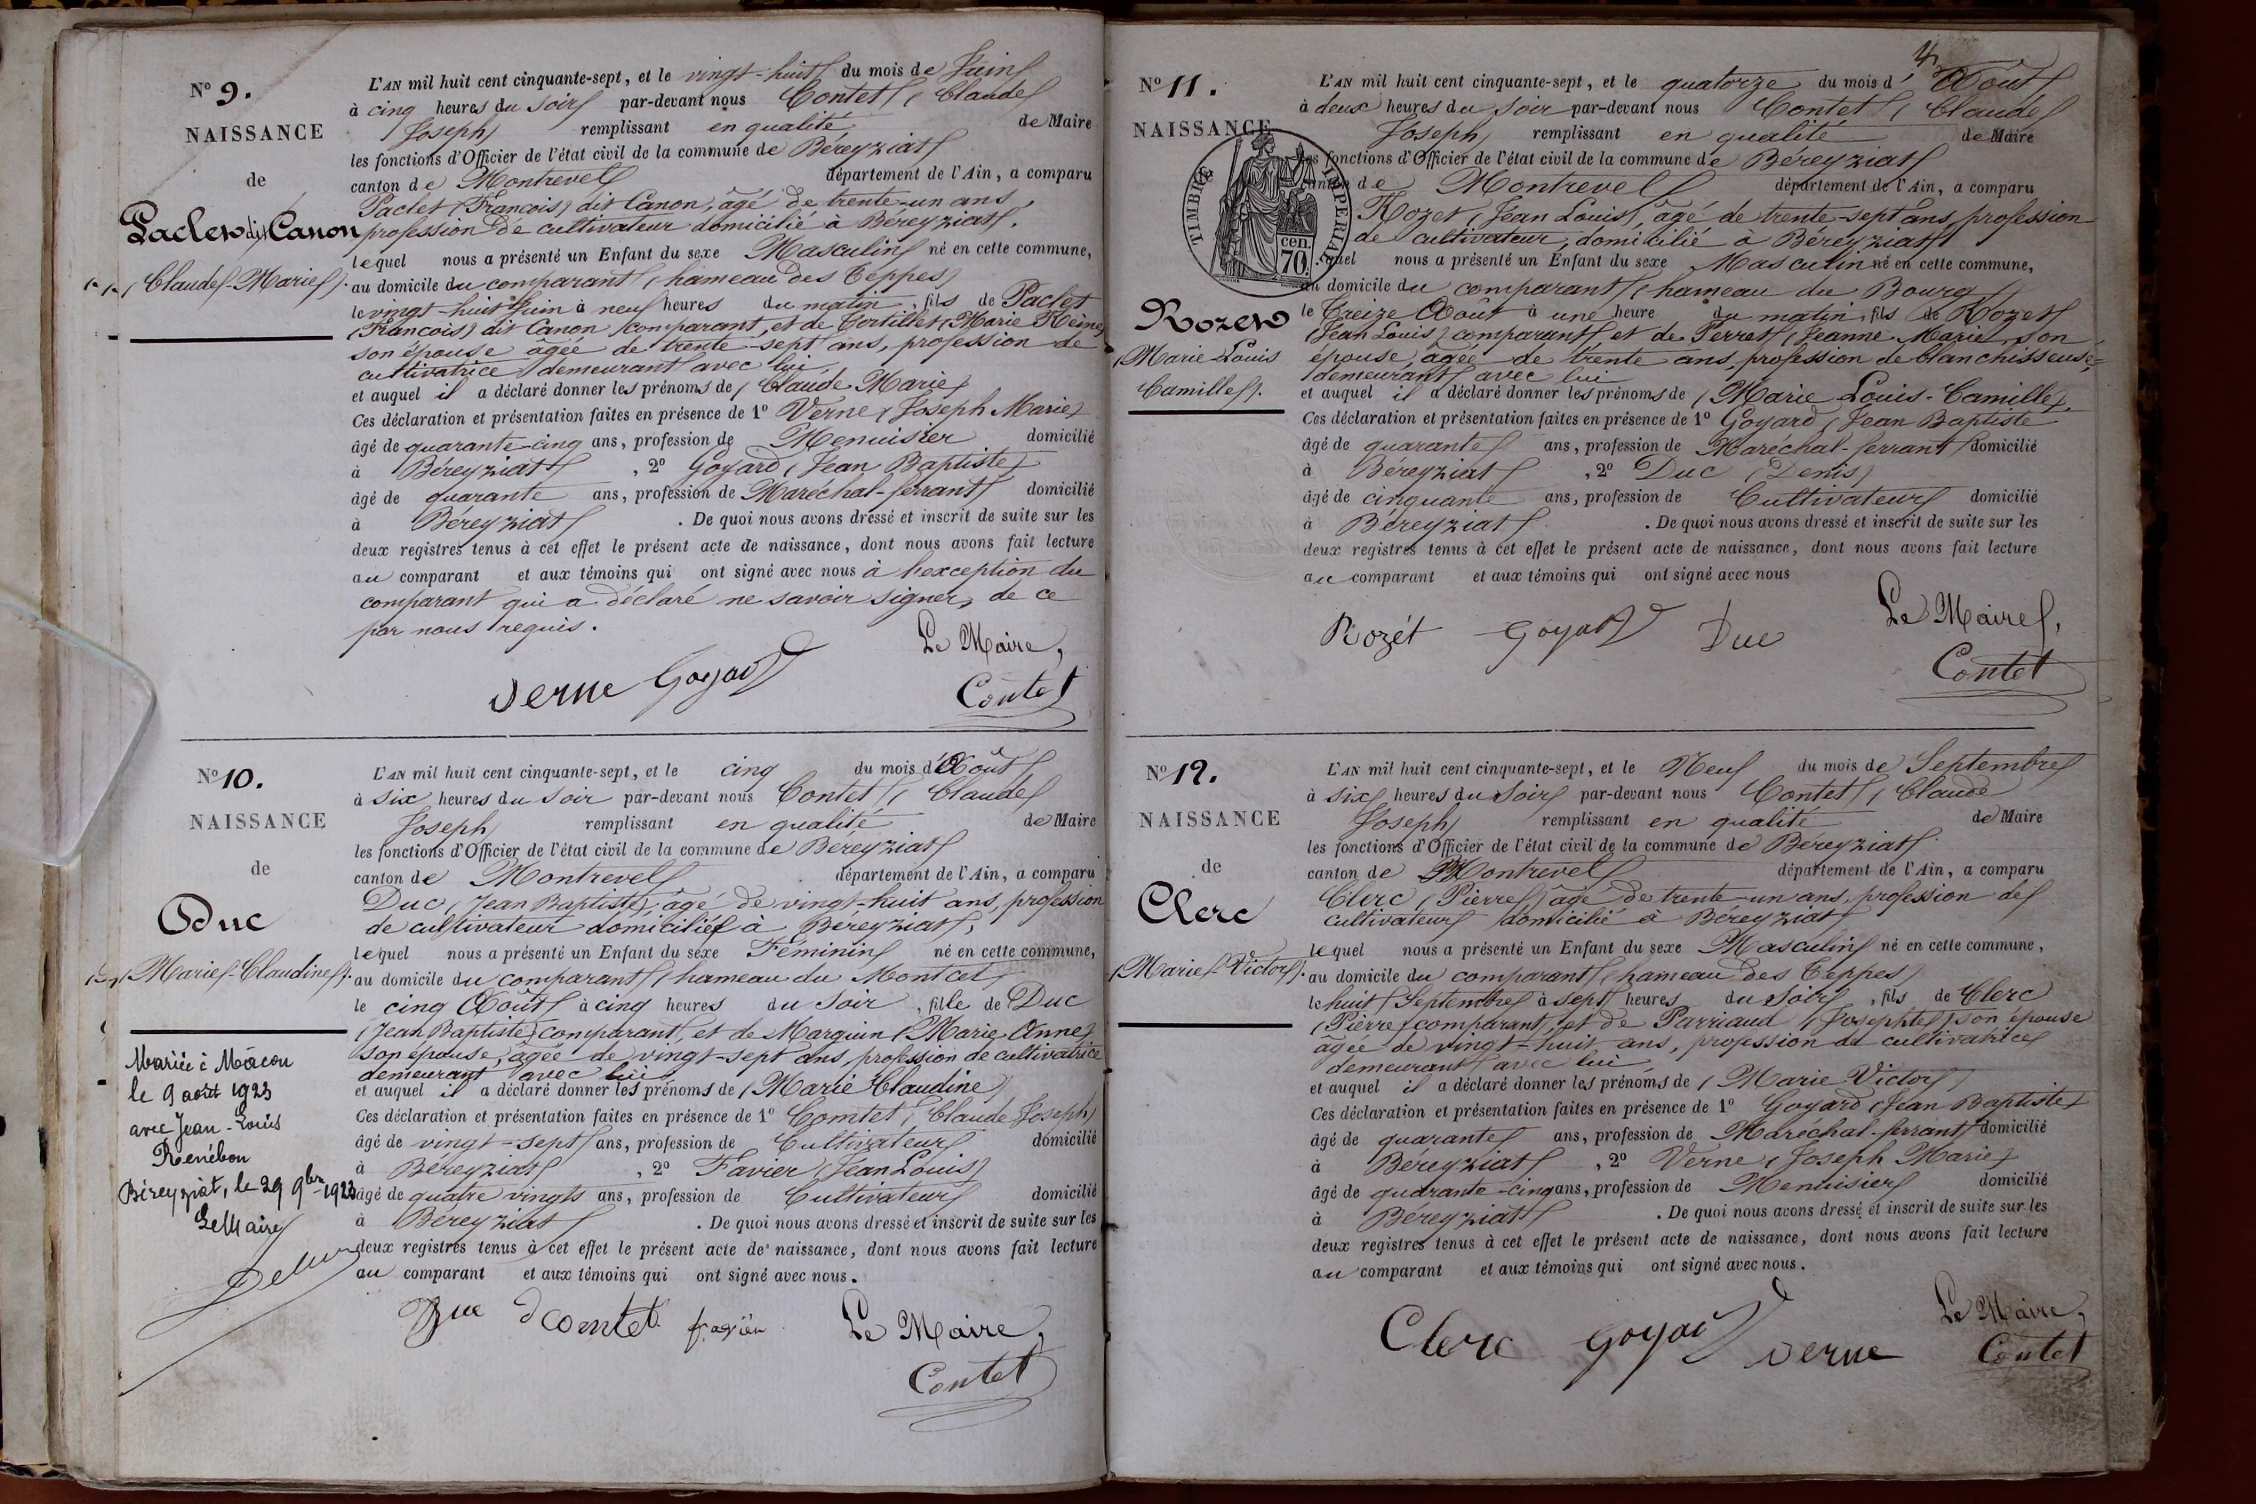 N° 9.
NAISSANCE
de
Paclet dit Canon
(Claude-Marie).
L'AN mil huit cent cinquante-sept, et le vingt-huit du mois de Juin
à cinq heures du soir par-devant nous Contet (Claude
Joseph) remplissant en qualité de Maire
les fonctions d'Officier de l'état civil de la commune de Béreyziat
canton de Montrevel département de l'Ain, a comparu
Paclet (François) dit Canon, âgé de trente-un ans,
profession de cultivateur domicilié à Béreyziat,
lequel nous a présenté un Enfant du sexe Masculin né en cette commune,
au domicile du comparant (hameau des Teppes)
le vingt-huit Juin à neuf heures du matin, fils de Paclet
(François) dit Canon, comparant, et de Tortillet (Marie Reine)
son épouse âgée de trente-sept ans, profession de
cultivatrice demeurant avec lui
et auquel il a déclaré donner les prénoms de (Claude Marie)
Ces déclaration et présentation faites en présence de 1° Verne (Joseph Marie)
âgé de quarante-cinq ans, profession de Menuisier domicilié
à Béreyziat, 2° Goyard (Jean Baptiste)
âgé de quarante ans, profession de Maréchal-ferrant domicilié
à Béreyziat. De quoi nous avons dressé et inscrit de suite sur les
deux registres tenus à cet effet le présent acte de naissance, dont nous avons fait lecture
au comparant et aux témoins qui ont signé avec nous à l'exception du
comparant qui a déclaré ne savoir signer, de ce
par nous requis.
Le Maire,
Verne Goyard
Contet
N° 10.
NAISSANCE
de
Duc
(Marie-Claudine).
Mariée à Mâcon
le 9 août 1923
avec Jean-Louis
Renébon
Béreyziat, le 29 9bre 1923
Le Maire
L'AN mil huit cent cinquante-sept, et le cinq du mois d'Août
à six heures du soir par-devant nous Contet (Claude
Joseph) remplissant en qualité de Maire
les fonctions d'Officier de l'état civil de la commune de Béreyziat
canton de Montrevel département de l'Ain, a comparu
Duc (Jean Baptiste), âgé de vingt-huit ans, profession
de cultivateur domicilié à Béreyziat,
lequel nous a présenté un Enfant du sexe Féminin né en cette commune,
au domicile du comparant (hameau du Montcet)
le cinq Août à cinq heures du soir, fille de Duc
(Jean Baptiste) comparant, et de Marguin (Marie Anne)
son épouse, âgée de vingt-sept ans, profession de cultivatrice
demeurant avec lui
et auquel il a déclaré donner les prénoms de (Marie Claudine)
Ces déclaration et présentation faites en présence de 1° Comtet (Claude Joseph)
âgé de vingt-sept ans, profession de Cultivateur domicilié
à Béreyziat, 2° Favier (Jean Louis)
âgé de quatre vingts ans, profession de Cultivateur domicilié
à Béreyziat. De quoi nous avons dressé et inscrit de suite sur les
deux registres tenus à cet effet le présent acte de naissance, dont nous avons fait lecture
au comparant et aux témoins qui ont signé avec nous.
Duc Comtet favier Le Maire,
Contet
4
N° 11.
NAISSANCE
TIMBRE IMPERIAL
70 cen.
Rozet
(Marie Louis
Camille).
L'AN mil huit cent cinquante-sept, et le quatorze du mois d'Août
à deux heures du soir par-devant nous Contet (Claude
Joseph) remplissant en qualité de Maire
les fonctions d'Officier de l'état civil de la commune de Béreyziat
canton de Montrevel département de l'Ain, a comparu
Rozet (Jean Louis), âgé de trente-sept ans, profession
de cultivateur, domicilié à Béreyziat
lequel nous a présenté un Enfant du sexe Masculin né en cette commune,
au domicile du comparant (hameau du Bourg)
le Treize Août à une heure du matin, fils de Rozet
(Jean Louis) comparant et de Perret (Jeanne Marie) son
épouse âgée de trente ans, profession de blanchisseuse
demeurant avec lui
et auquel il a déclaré donner les prénoms de (Marie Louis-Camille)
Ces déclaration et présentation faites en présence de 1° Goyard (Jean Baptiste
âgé de quarante ans, profession de Maréchal-ferrant domicilié
à Béreyziat, 2° Duc (Denis)
âgé de cinquante ans, profession de Cultivateur domicilié
à Béreyziat. De quoi nous avons dressé et inscrit de suite sur les
deux registres tenus à cet effet le présent acte de naissance, dont nous avons fait lecture
au comparant et aux témoins qui ont signé avec nous
Le Maire,
Rozét Goyard Duc
Contet
N° 12.
NAISSANCE
de
Clerc
(Marie-Victor).
L'AN mil huit cent cinquante-sept, et le Neuf du mois de Septembre
à six heures du soir par-devant nous Contet (Claude
Joseph) remplissant en qualité de Maire
les fonctions d'Officier de l'état civil de la commune de Béreyziat
canton de Montrevel département de l'Ain, a comparu
Clerc (Pierre) âgé de trente-un ans, profession de
cultivateur domicilié à Béreyziat
lequel nous a présenté un Enfant du sexe Masculin né en cette commune,
au domicile du comparant (hameau des Teppes)
le huit Septembre à sept heures du soir, fils de Clerc
(Pierre) comparant, et de Parriaud (Josephte) son épouse
âgée de vingt-huit ans, profession de cultivatrice
demeurant avec lui
et auquel il a déclaré donner les prénoms de (Marie Victor)
Ces déclaration et présentation faites en présence de 1° Goyard (Jean Baptiste)
âgé de quarante ans, profession de Maréchal-ferrant domicilié
à Béreyziat, 2° Verne (Joseph Marie)
âgé de quarante-cinq ans, profession de Menuisier domicilié
à Béreyziat. De quoi nous avons dressé et inscrit de suite sur les
deux registres tenus à cet effet le présent acte de naissance, dont nous avons fait lecture
au comparant et aux témoins qui ont signé avec nous.
Le Maire,
Clerc Goyard Verne Contet